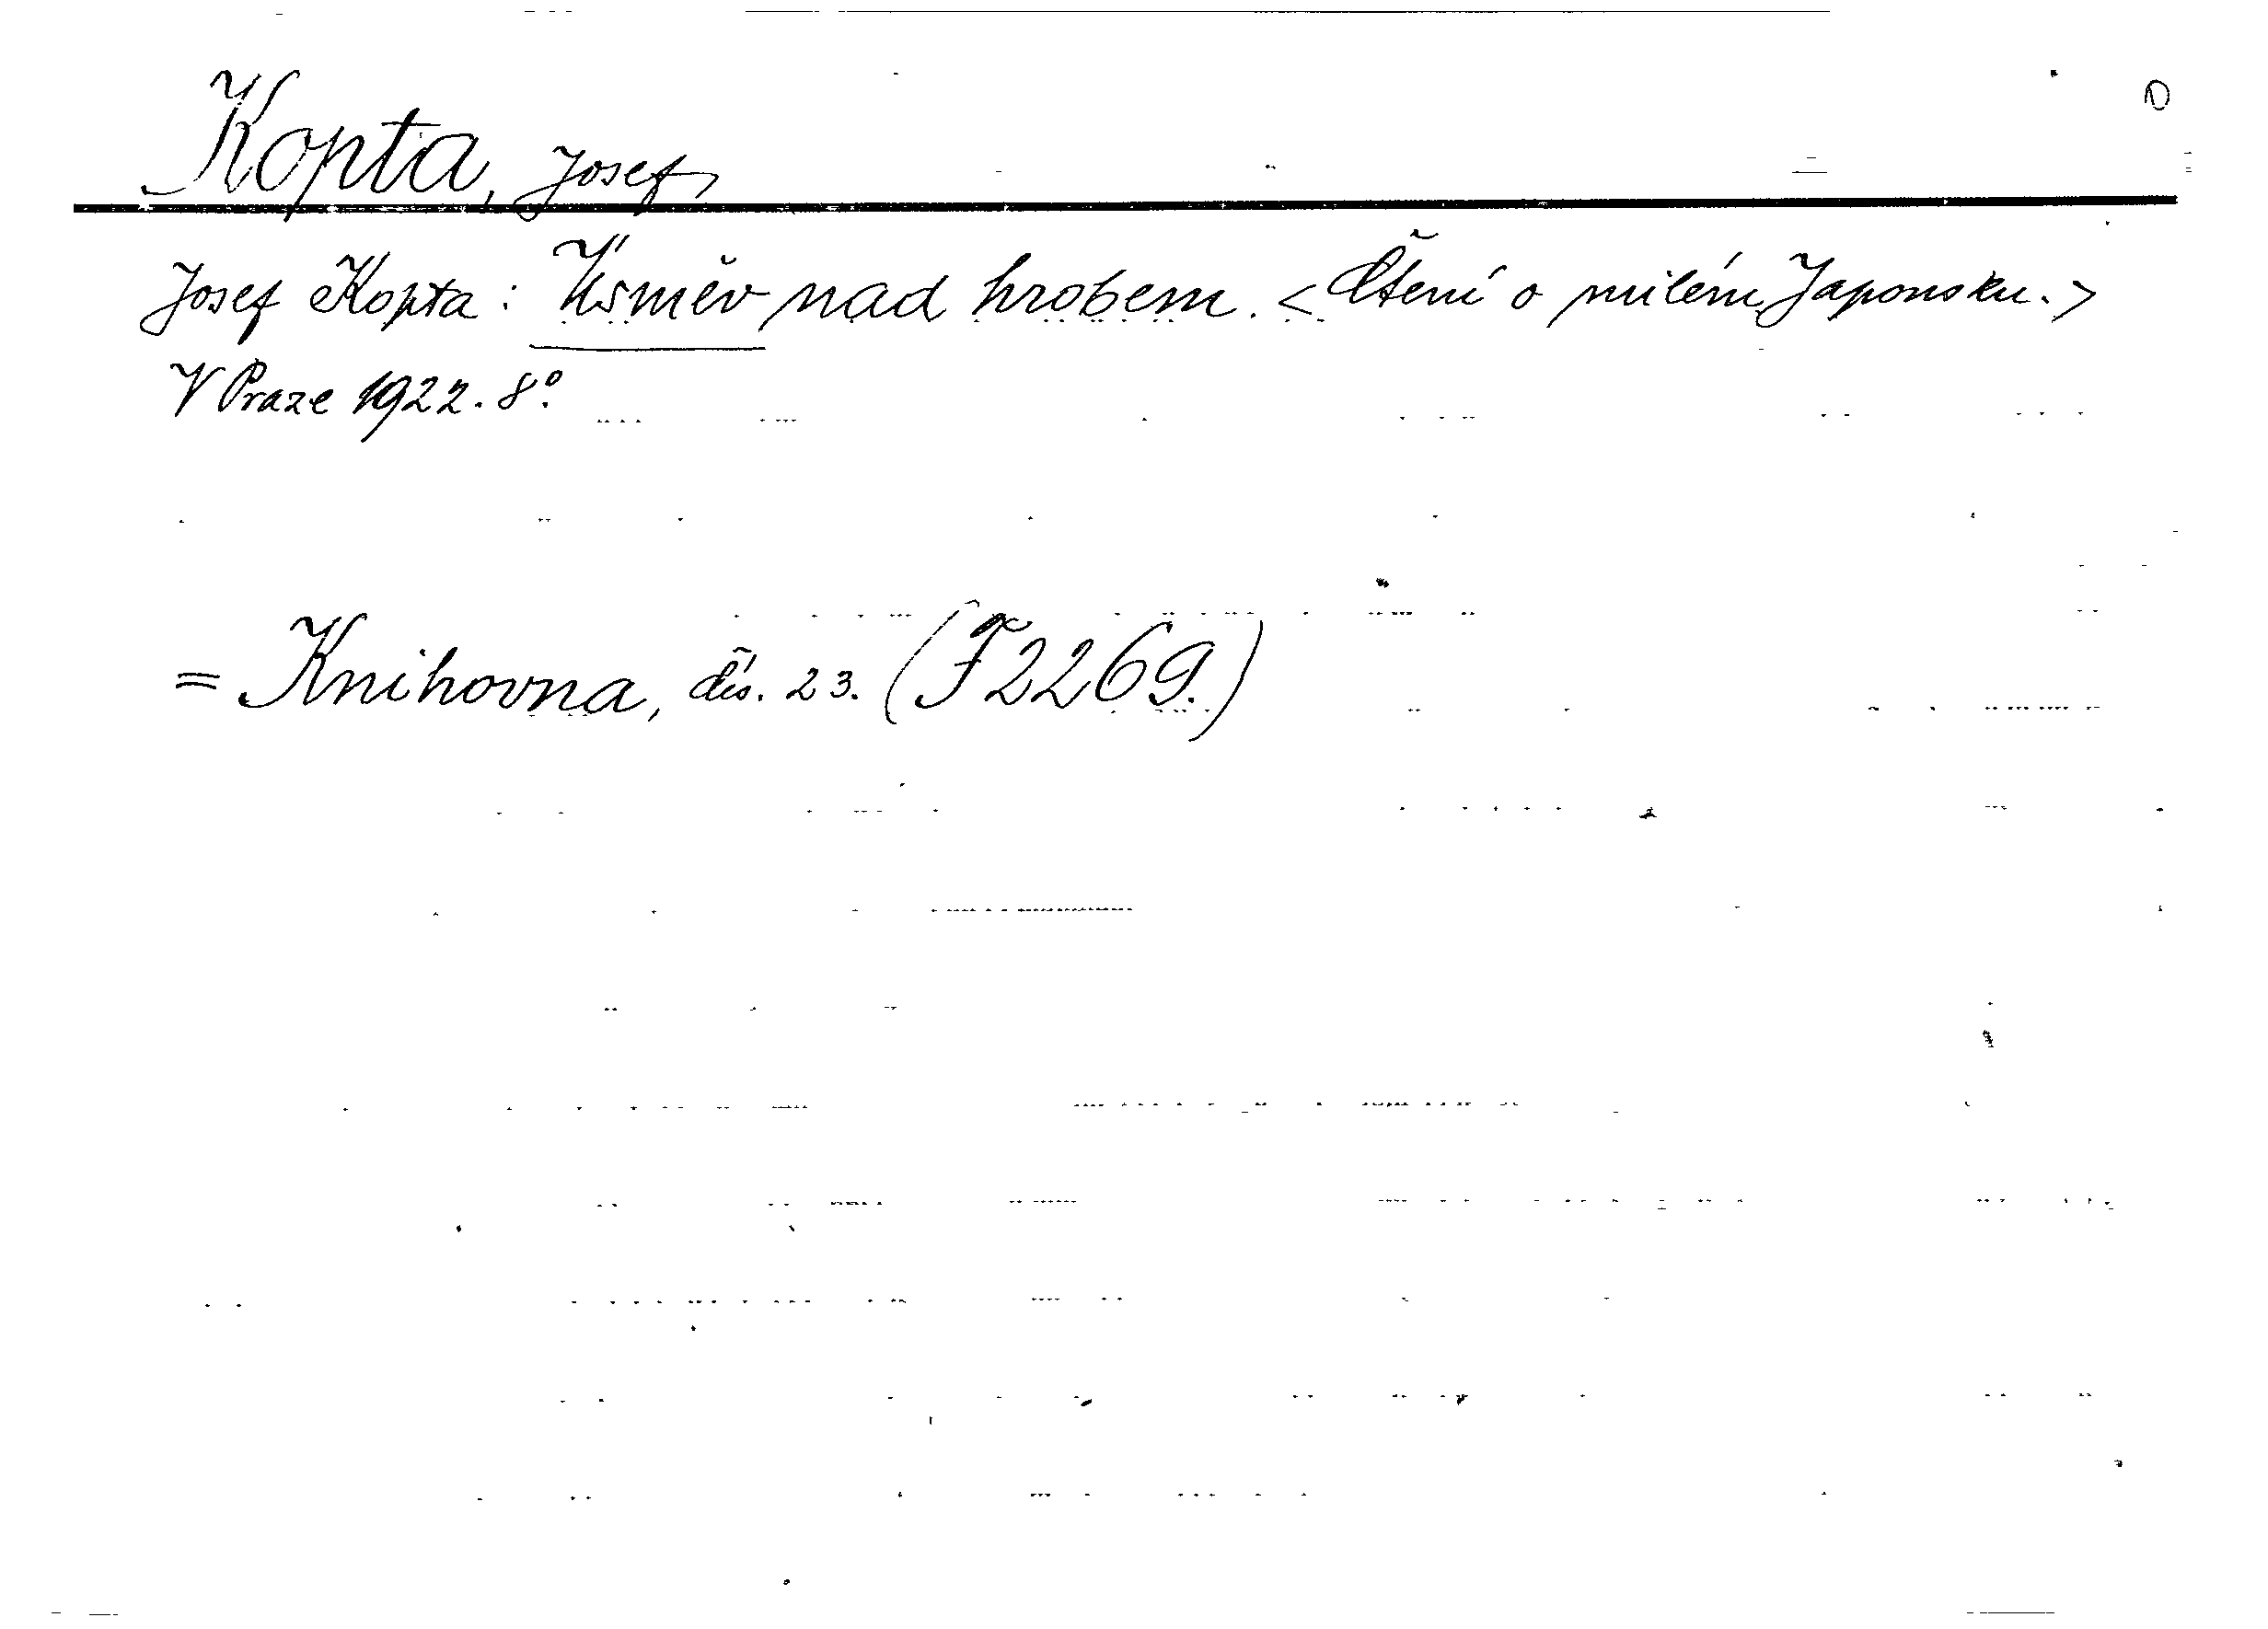 Kopta, Josef
Josef Kopta: Úsměv nad hrobem. <Čtení o milém Japonsku.>
V Praze 1922. 8°.
= Knihovna, čís. 23. (F 2269.)